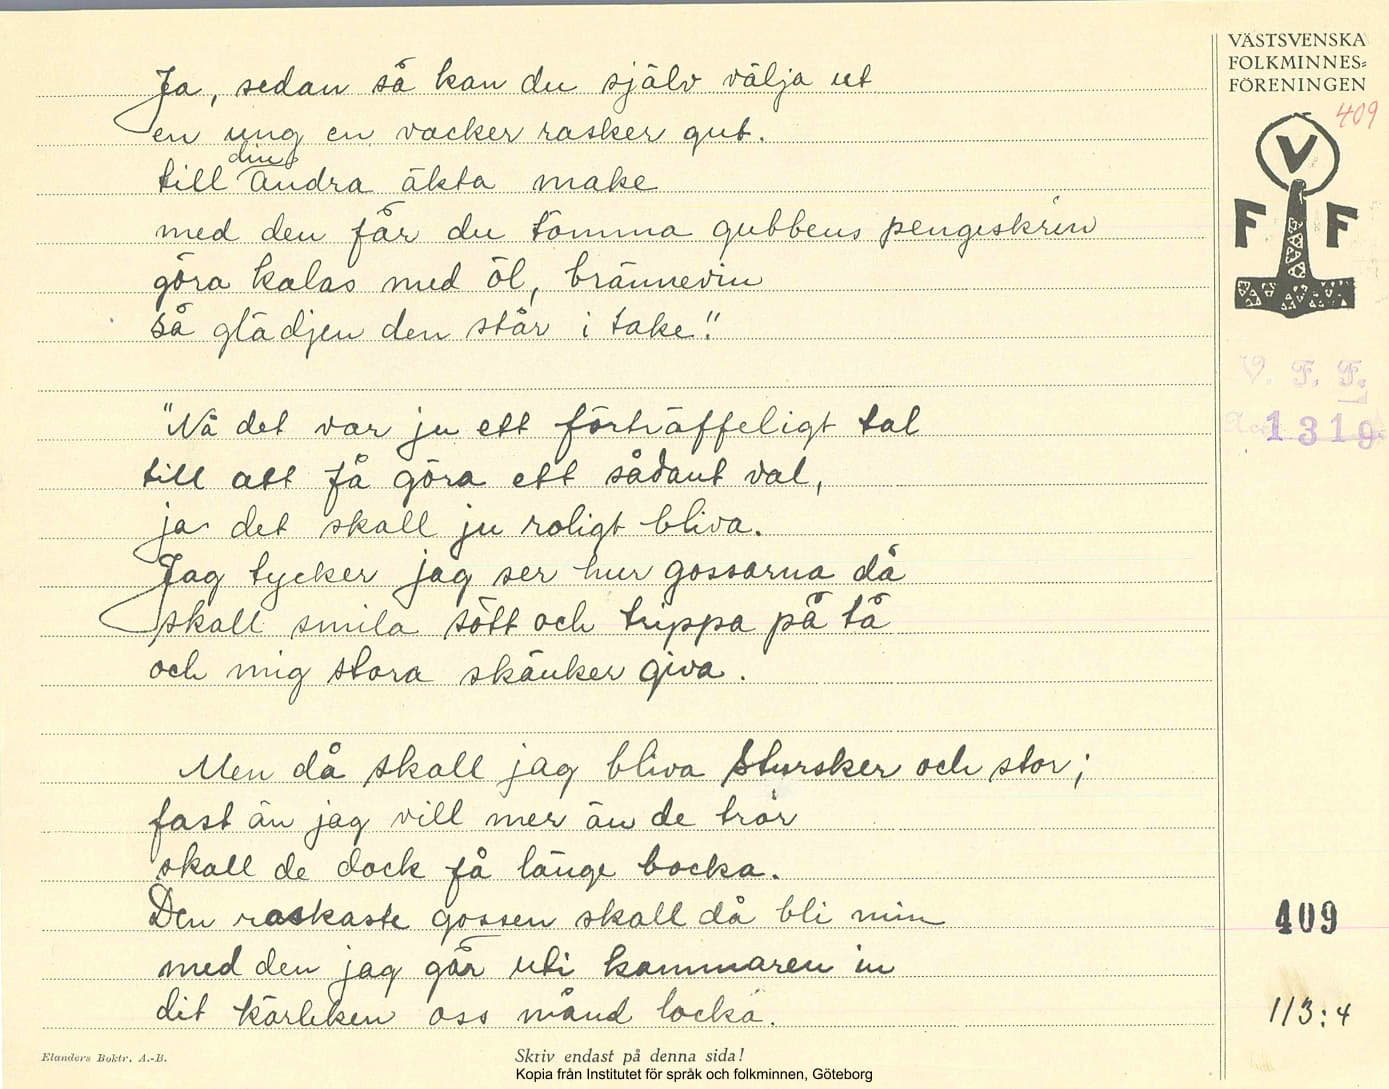 Ja, sedan så kan du själv välja ut
en ung en vacker rasker gut.
din
till andra äkta make
med den får du tömma gubbens pengeskrin
göra kalas med öl, brännevin
så glädjen den står i take."
"Nå det var ju ett förträffeligt tal
till att få göra ett sådant val,
ja det skall ju roligt bliva.
Jag tycker jag ser hur gossarna då
skall smila sött och trippa på tå
och mig stora skänker giva.
Men då skall jag bliva stursker och stor;
fast än jag vill mer än de tror
skall de dock få länge bocka.
Den raskaste gossen skall då bli min
med den jag går uti kammaren in
dit kärleken oss månd locka.
Elanders Boktr. A.-B.
Skriv endast på denna sida!
Kopia från Institutet för språk och folkminnen, Göteborg
VÄSTSVENSKA
FOLKMINNES=
FÖRENINGEN
409
V
F F
V. F. F.
Acc 1319
409
113:4